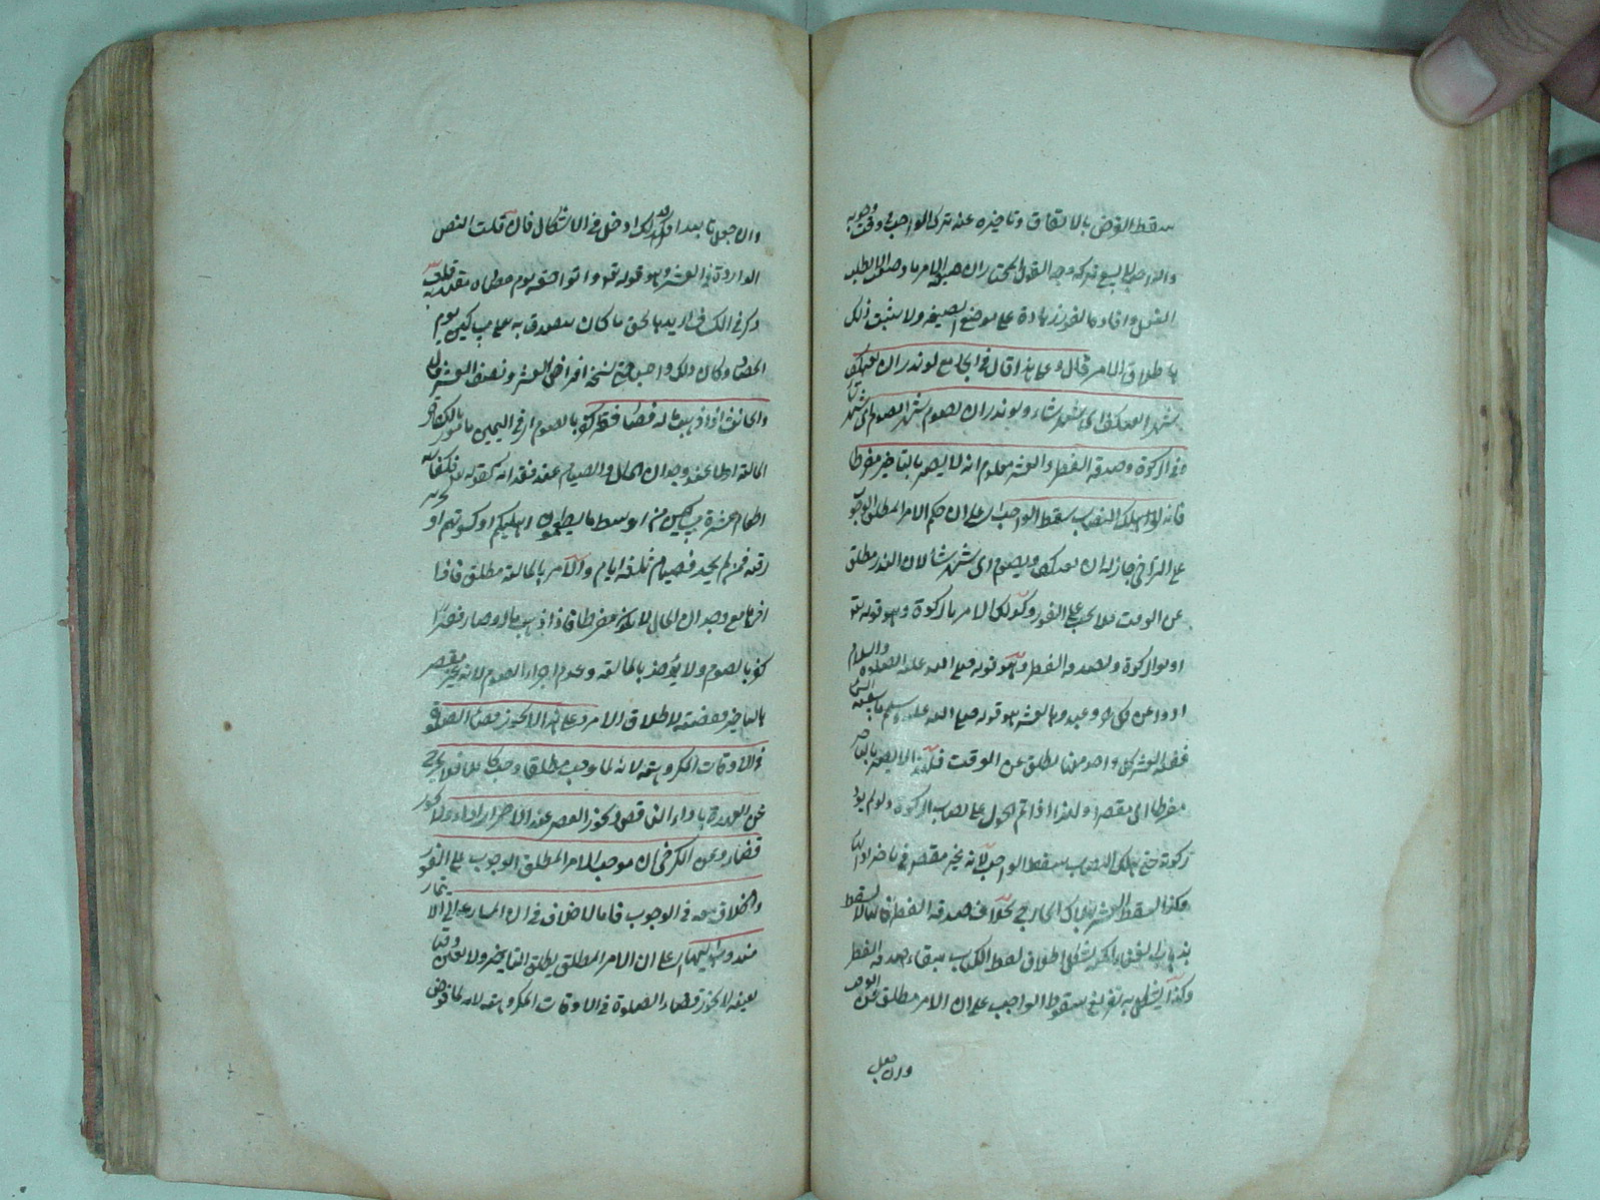 سقط الفرض بالاتفاق وتاخيره عنه ترك الواجب في وقت وجوبه
والواجب لا يسع تركه وجه القول المختار ان صيغة الامر ما وضعت الا لطلب
الفعل وافادتها الفور زيادة على موضع الصيغة ولا يثبت ذلك
باطلاق الامر قال وعلى هذا قال في الجامع لو نذر ان يعتكف
شهرا له ان يعتكف اي شهر شاء ولو نذر ان يصوم شهرا له ان يصوم اي شهر شاء
وفي الزكوة وصدقة الفطر والعشر معلوم انه لا يصير بالتاخير مفرطا
فانه لو هلك النصاب سقط الواجب على ان حكم الامر المطلق الوجوب
على التراخي جاز له ان يعتكف ويصوم اي شهر شاء لان النذر مطلق
عن الوقت فلا يجب على الفور وكذلك الامر بالزكوة وهو قوله تع
اوتوا الزكوة وبصدقة الفطر وهو قوله صلى الله عليه الصلوة والسلام
ادوا عن كل حر وعبد وبالعشر هو قوله صلى الله عليه وسلم ما سقته السماء
ففيه العشر كل واحد منها مطلق عن الوقت فلهذا لا يصير بالتاخير
مفرطا اي مقصرا ولهذا اذا تم الحول على نصاب الزكوة ولم يؤد
زكوته حتى هلك النصاب سقط الواجب لانه غير مقصر في تاخير اداء
هكذا يسقط العشر بهلاك الخارج بخلاف صدقة الفطر فانها لا تسقط
بذهاب الغنى ولكن يشكل اطلاق لفظ الكتاب ببقاء صدقة الفطر
وكذا يشكل به تفريع سقوط الواجب على ان الامر مطلق عن الوقت
وان جعل
وان جعل تابعا لذلك ادخل في الاشكال فان قلت النص
الواردة في العشر وهو قوله تع واتوا حقه يوم حصاده مقيد به قلت
ذكر في الكشاف اريد بالحق ما كان يتصدق به على المساكين يوم
الحصاد وكان ذلك واجبا حتى نسخه افتراض العشر ونصف العشر قال
والحانث اذا ذهب ماله فصار فقيرا كفر بالصوم اذ في اليمين مامور بالكفارة
المالية اولا عند وجدان المال والصيام عند فقدانه كقوله تع فكفارته
اطعام عشرة مساكين من اوسط ما تطعمون اهليكم او كسوتهم او تحرير
رقبة فمن لم يجد فصيام ثلثة ايام والامر بالمالية مطلق فاذا
اخرها مع وجدان المال لا يكون مفرطا فاذا ذهب ماله وصار فقيرا
كفر بالصوم ولا يؤخذ بالمالية وعدم اجزاء الصوم لانه غير مقصر
بالتاخير وقضية لاطلاق الامر وعلى هذا لا يجوز قضاء الصلوة
في الاوقات المكروهة لانه لما وجب مطلقا وجب كاملا فلا يخرج
عن العهدة باداء الناقص يجوز العصر عند الاحمرار اداء ولا يجوز
قضاء وعن الكرخي ان موجب الامر المطلق الوجوب على الفور
والخلاف معه في الوجوب فاما لا خلاف في ان المسارعة الى الايتمار
مندوب اليها على ان الامر المطلق يطلق التاخير ولا يعين وقتا
بعينه لا يجوز قضاء الصلوة في الاوقات المكروهة لانه لما فوض